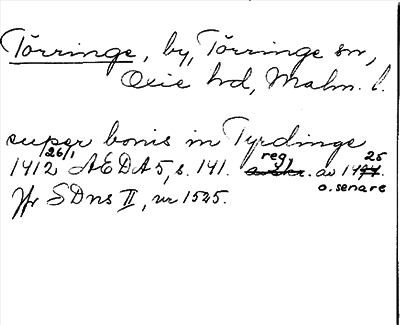 Törringe, by, Törringe sn,
Oxie hd, Malm. l.
super bonis in Tyrdinge
1412 26/1 AEDA 5, s. 141. reg. av 1425
o. senare
Jfr SDns II, nr 1525.